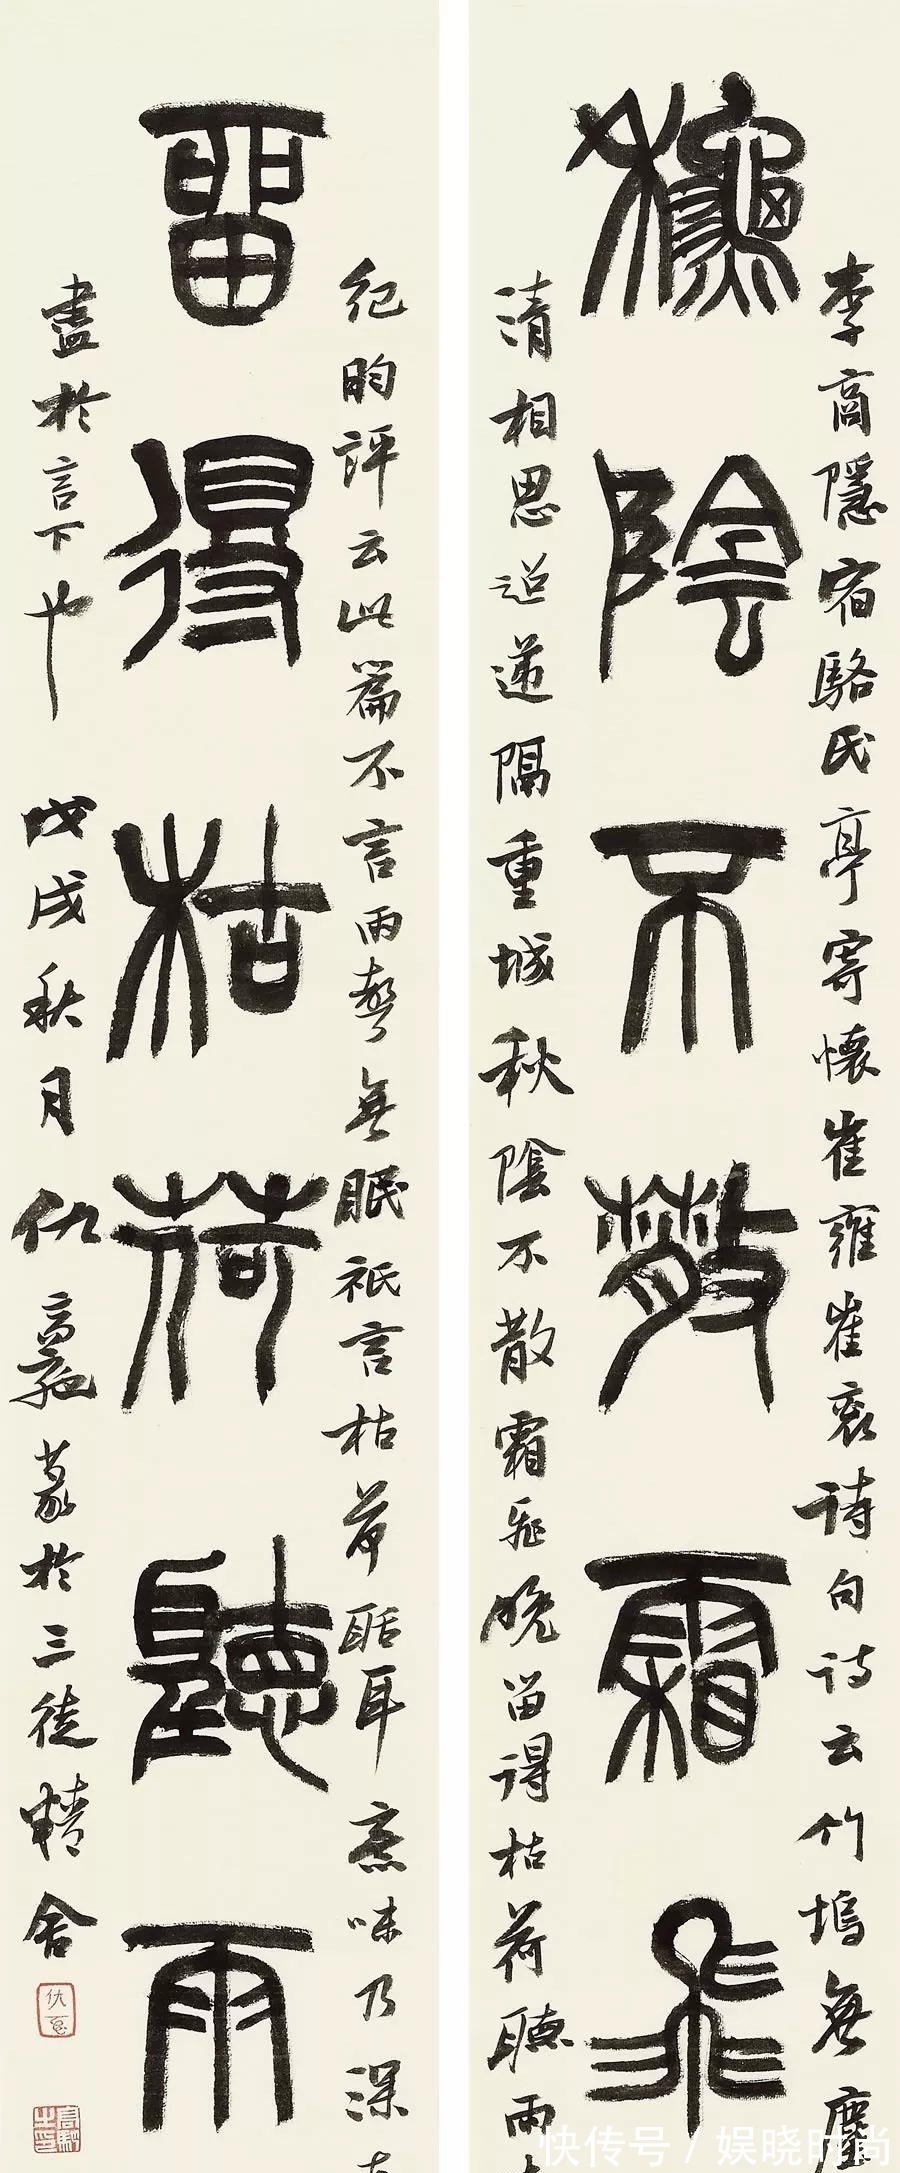 李商隱宿駱氏亭寄懷崔雍崔衮詩句詩云竹塢無塵
秋陰不散霜飛
清相思迢遞隔重城秋陰不散霜飛晚留得枯荷聽雨
紀昀評云此篇不言雨聲無眠祇言枯荷聒耳意味乃深
留得枯荷聽雨
盡於言下也
戊戌秋月仇高馳篆於三徒精舍
快传号 / 娱晓时尚